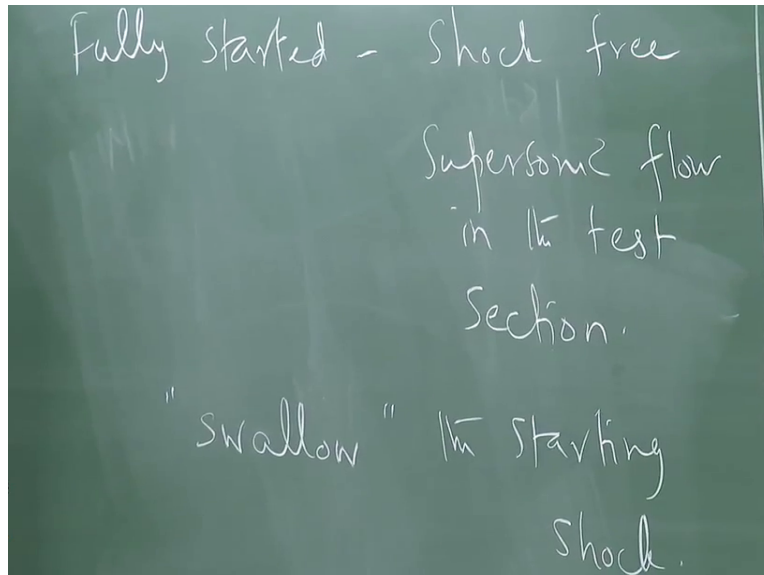 Fully started - Shock free
Supersonic flow
in the test
Section.
"swallow" the starting
shock.